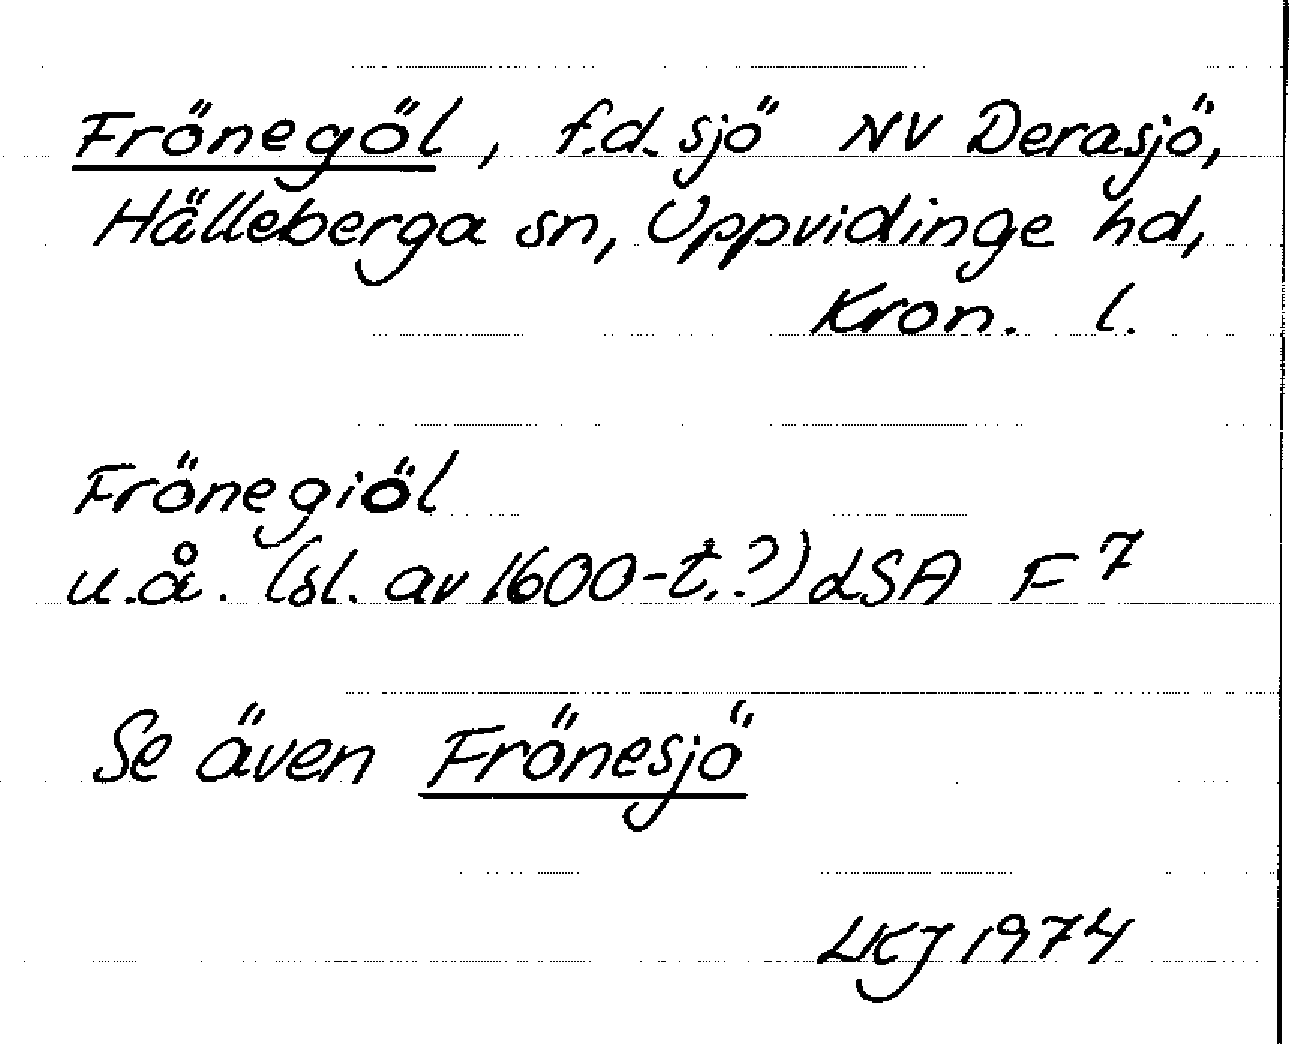 Frönegöl, f.d. sjö NV Derasjö,
Hälleberga sn, Uppvidinge hd,
Kron. l.
Frönegiöl
u.å. (sl. av 1600-t.?) LSA F 7
Se även Frönesjö
LKJ 1974